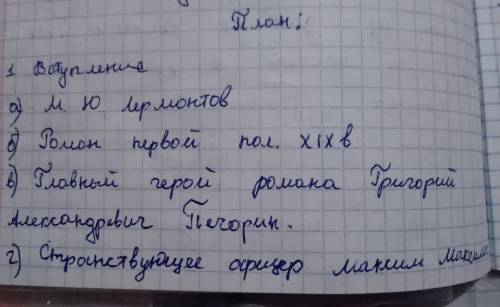 План:
1 Вступление
а) М. Ю Лермонтов
б) Роман первой пол. XIX в
в) Главный герой романа Григорий
Александревич Печорин.
г) Странствующее офицер Максим Максим